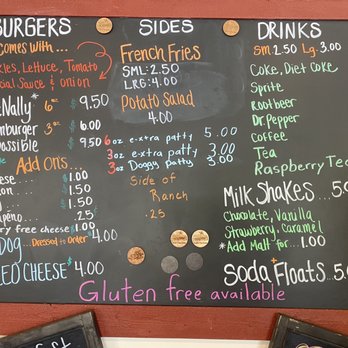 BURGERS
comes with...
Lettuce, Tomato
Sauce & onion
Nally* 6oz $9.50
3oz $6.00
$9.50
Add ons...
$1.00
1.50
1.50
.25
free cheese $1.00
Dog... Dressed to Order 4.00
CHEESE $4.00
SIDES
French Fries
SML: 2.50
LRG: 4.00
Potato Salad
4.00
6oz extra patty 5.00
3oz extra patty 3.00
3oz Doggy patty 3.00
Side of
Ranch
.25
DRINKS
Sm 2.50 Lg. 3.00
Coke, Diet Coke
Sprite
Rootbeer
Dr. Pepper
Coffee
Tea
Raspberry Tea
Milk Shakes...5.0
Chocolate, Vanilla
Strawberry, Caramel
*Add Malt for... 1.00
Soda Floats...5.0
Gluten free available